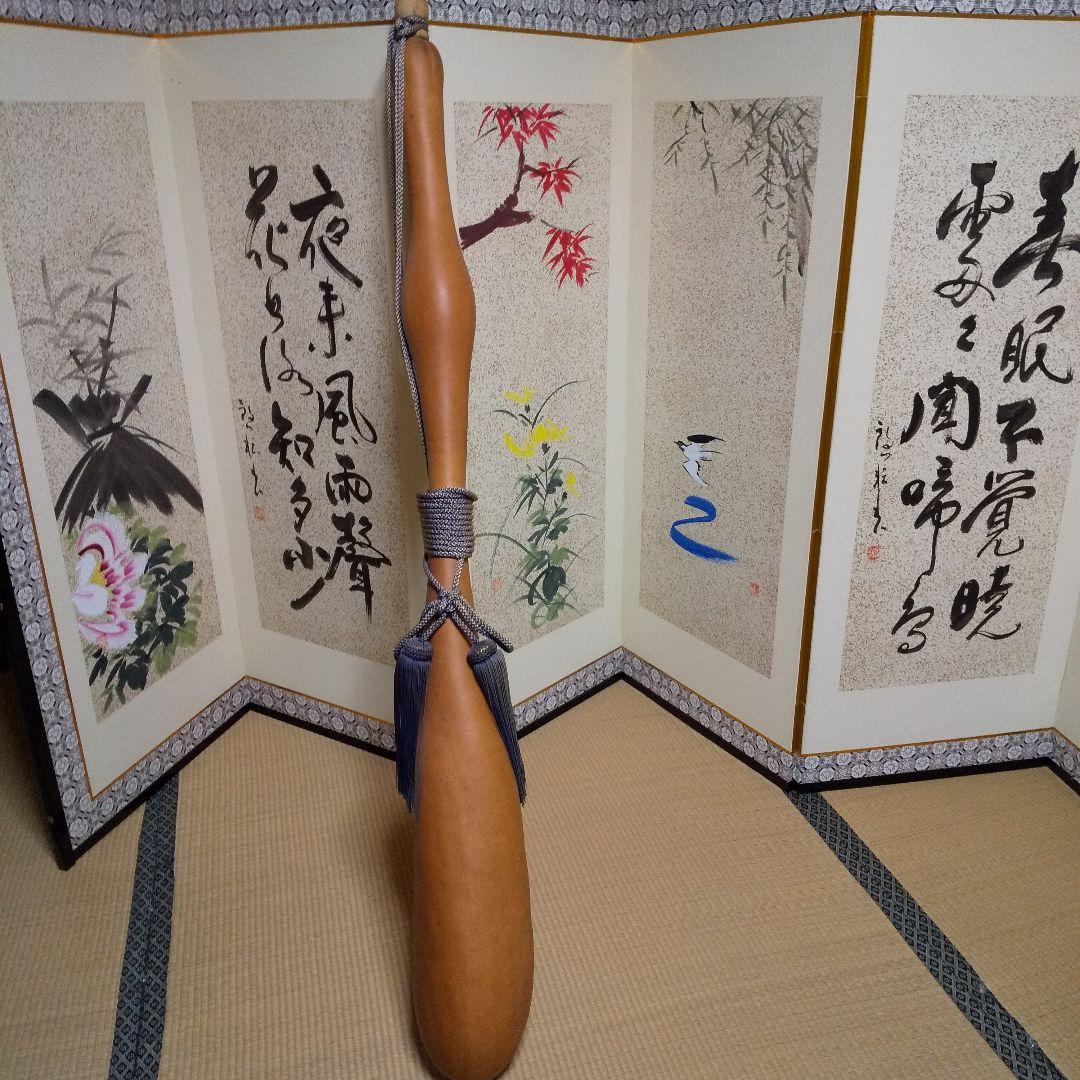 春眠不覺暁
處々聞啼鳥
夜来風雨聲
花落知多少